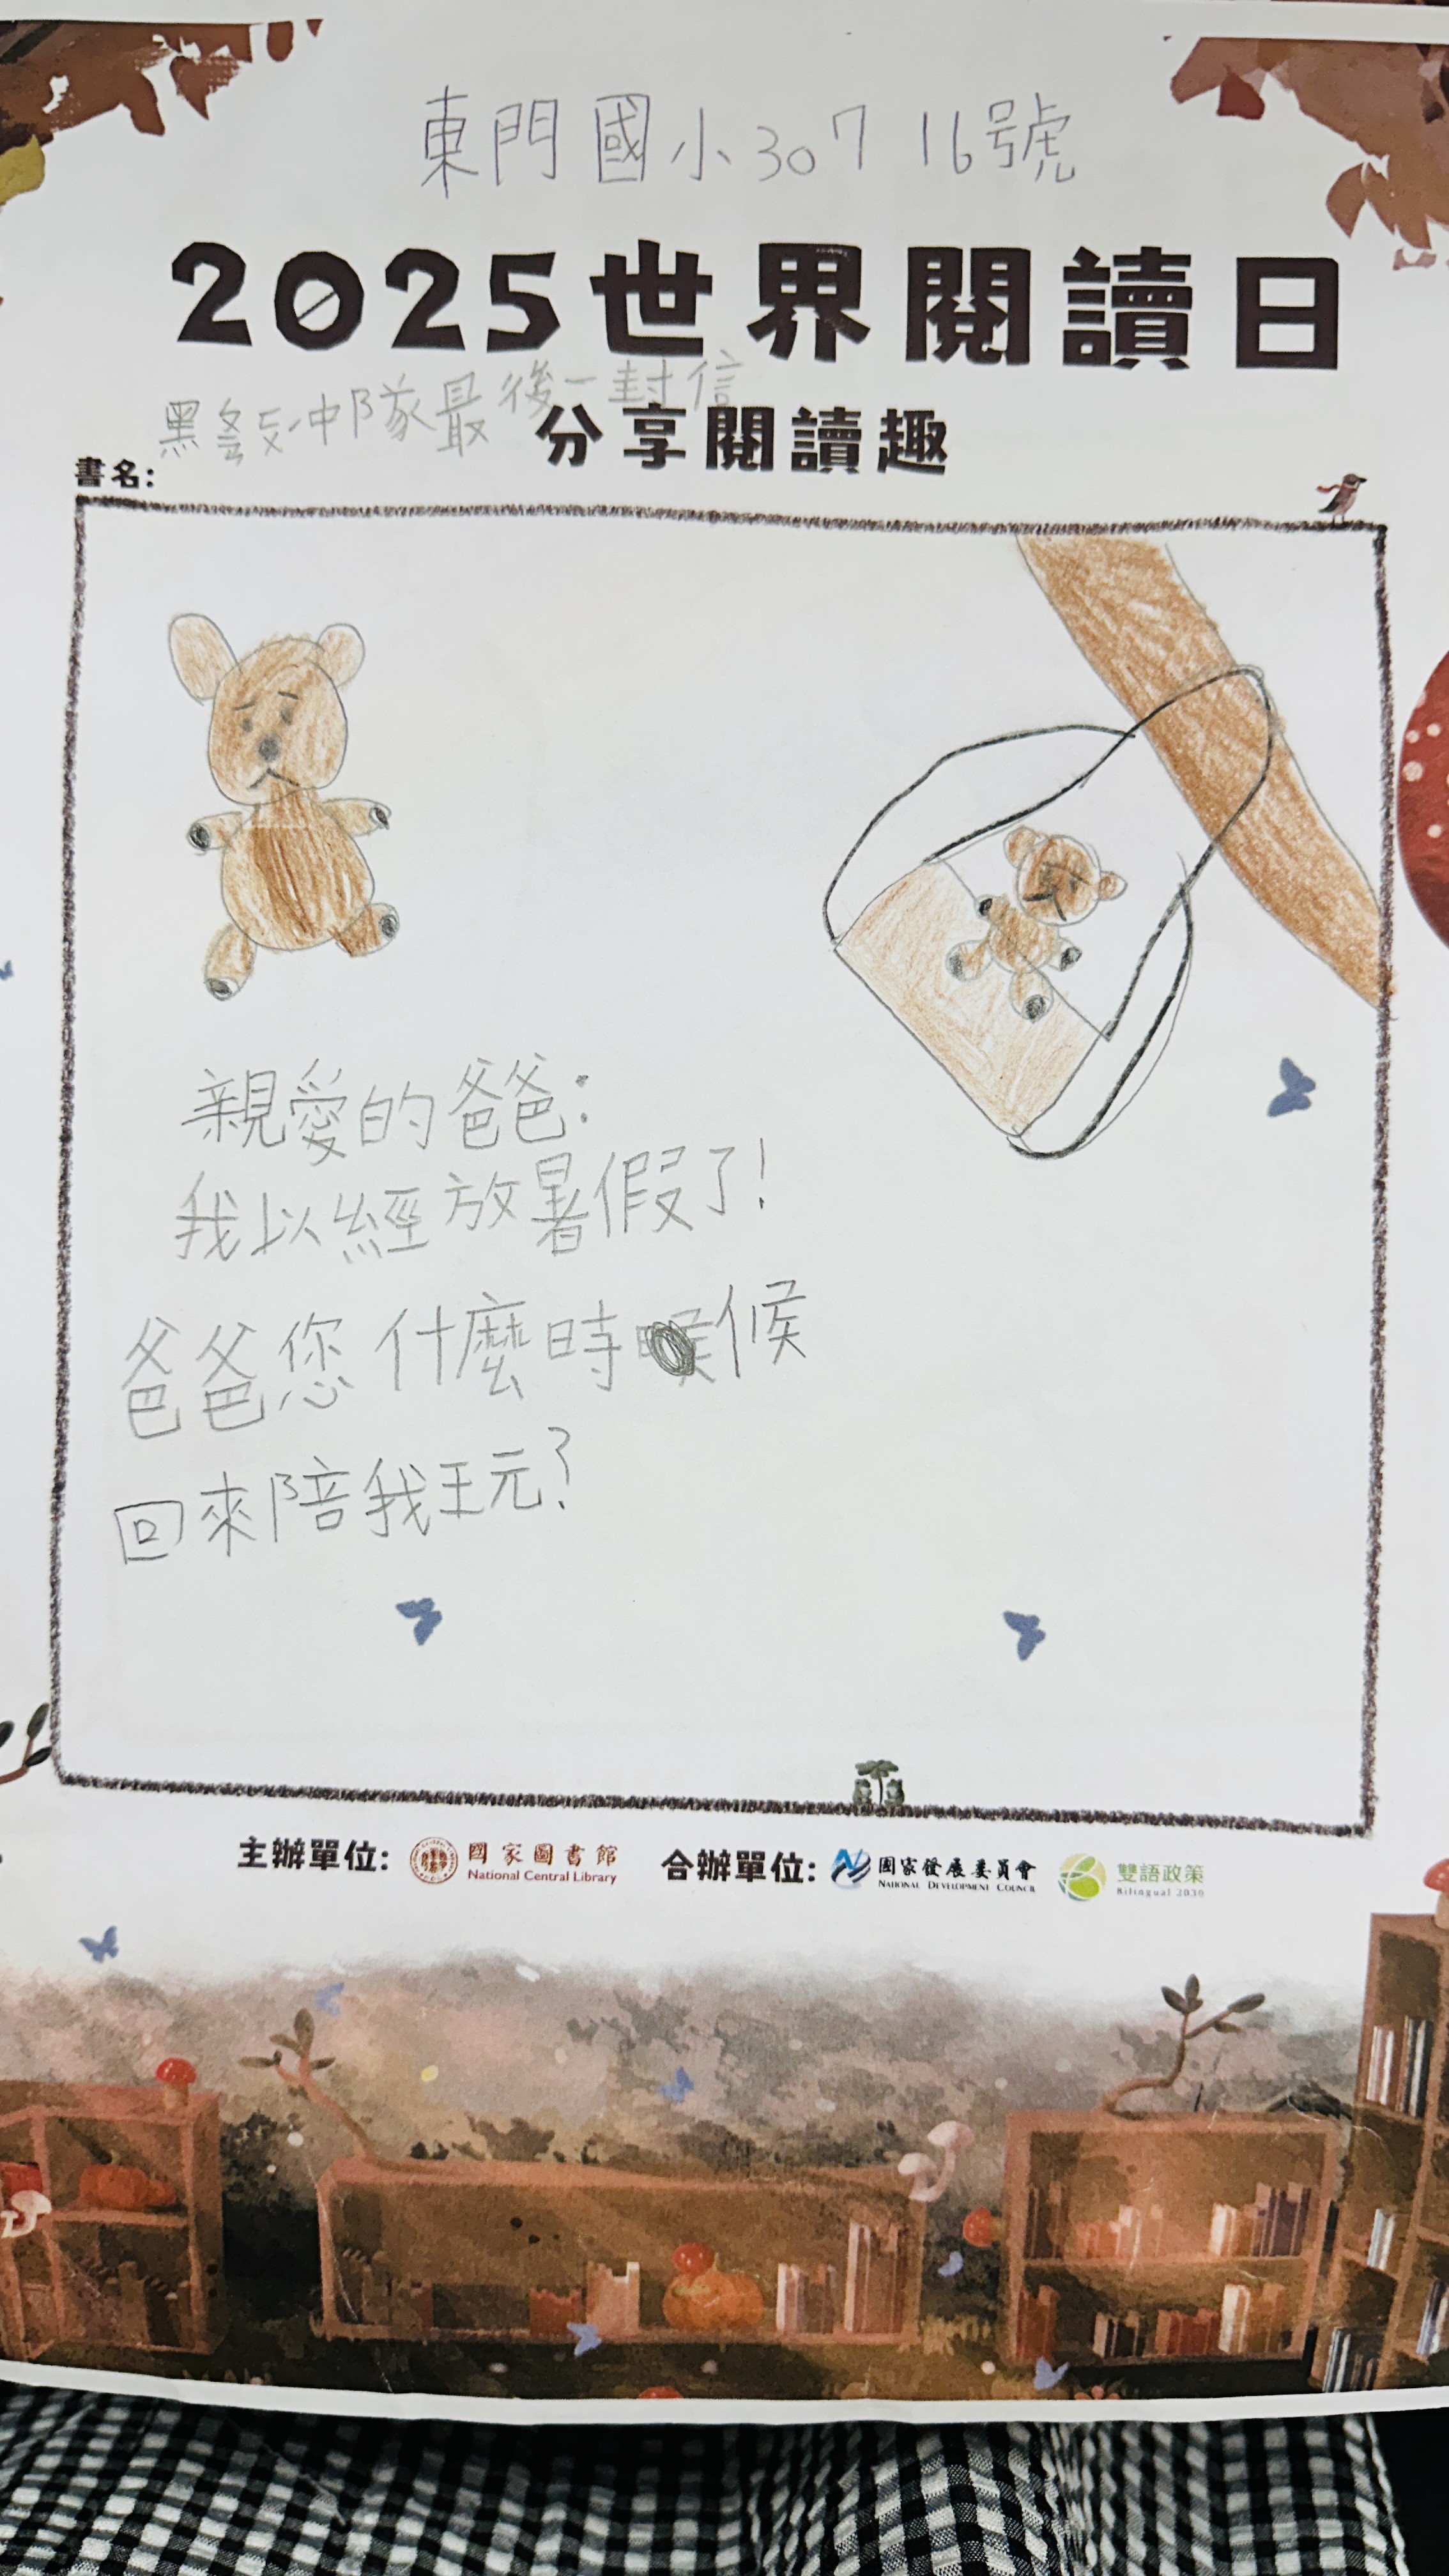 東門國小307 16號
2025世界閱讀日
黑豹中隊最後一封信
分享閱讀趣
書名:
親愛的爸爸:
我以經放暑假了!
爸爸您什麼時候
回來陪我王元?
主辦單位: 國家圖書館 National Central Library 合辦單位: 國家發展委員會 NATIONAL DEVELOPMENT COUNCIL 雙語政策 Bilingual 2030